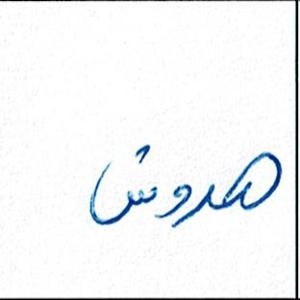 هدوش